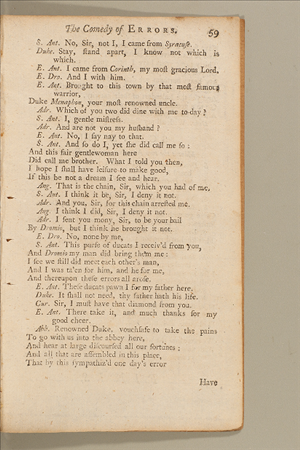 The Comedy of ERRORS. 59
S. Ant. No, Sir, not I, I came from Syracuse.
Duke. Stay, stand apart, I know not which is
which.
E. Ant. I came from Corinth, my most gracious Lord.
E. Dro. And I with him.
E. Ant. Brought to this town by that most famous
warrior,
Duke Menaphon, your most renowned uncle.
Adr. Which of you two did dine with me to-day?
S. Ant. I, gentle mistress.
Adr. And are not you my husband?
E. Ant. No, I say nay to that.
S. Ant. And so do I, yet she did call me so:
And this fair gentlewoman here
Did call me brother. What I told you then,
I hope I shall have leisure to make good,
If this be not a dream I see and hear.
Ang. That is the chain, Sir, which you had of me.
S. Ant. I think it be, Sir, I deny it not.
Adr. And you, Sir, for this chain arrested me.
Ang. I think I did, Sir, I deny it not.
Adr. I sent you mony, Sir, to be your bail
By Dromio, but I think he brought it not.
E. Dro. No, none by me,
S. Ant. This purse of ducats I receiv'd from you,
And Dromio my man did bring them me:
I see we still did meet each other's man,
And I was ta'en for him, and he for me,
And thereupon these errors all arose.
E. Ant. These ducats pawn I for my father here.
Duke. It shall not need, thy father hath his life.
Cur. Sir, I must have that diamond from you.
E. Ant. There take it, and much thanks for my
good cheer.
Abb. Renowned Duke, vouchsafe to take the pains
To go with us into the abbey here,
And hear at large discoursed all our fortunes;
And all that are assembled in this place,
That by this sympathiz'd one day's error
Have